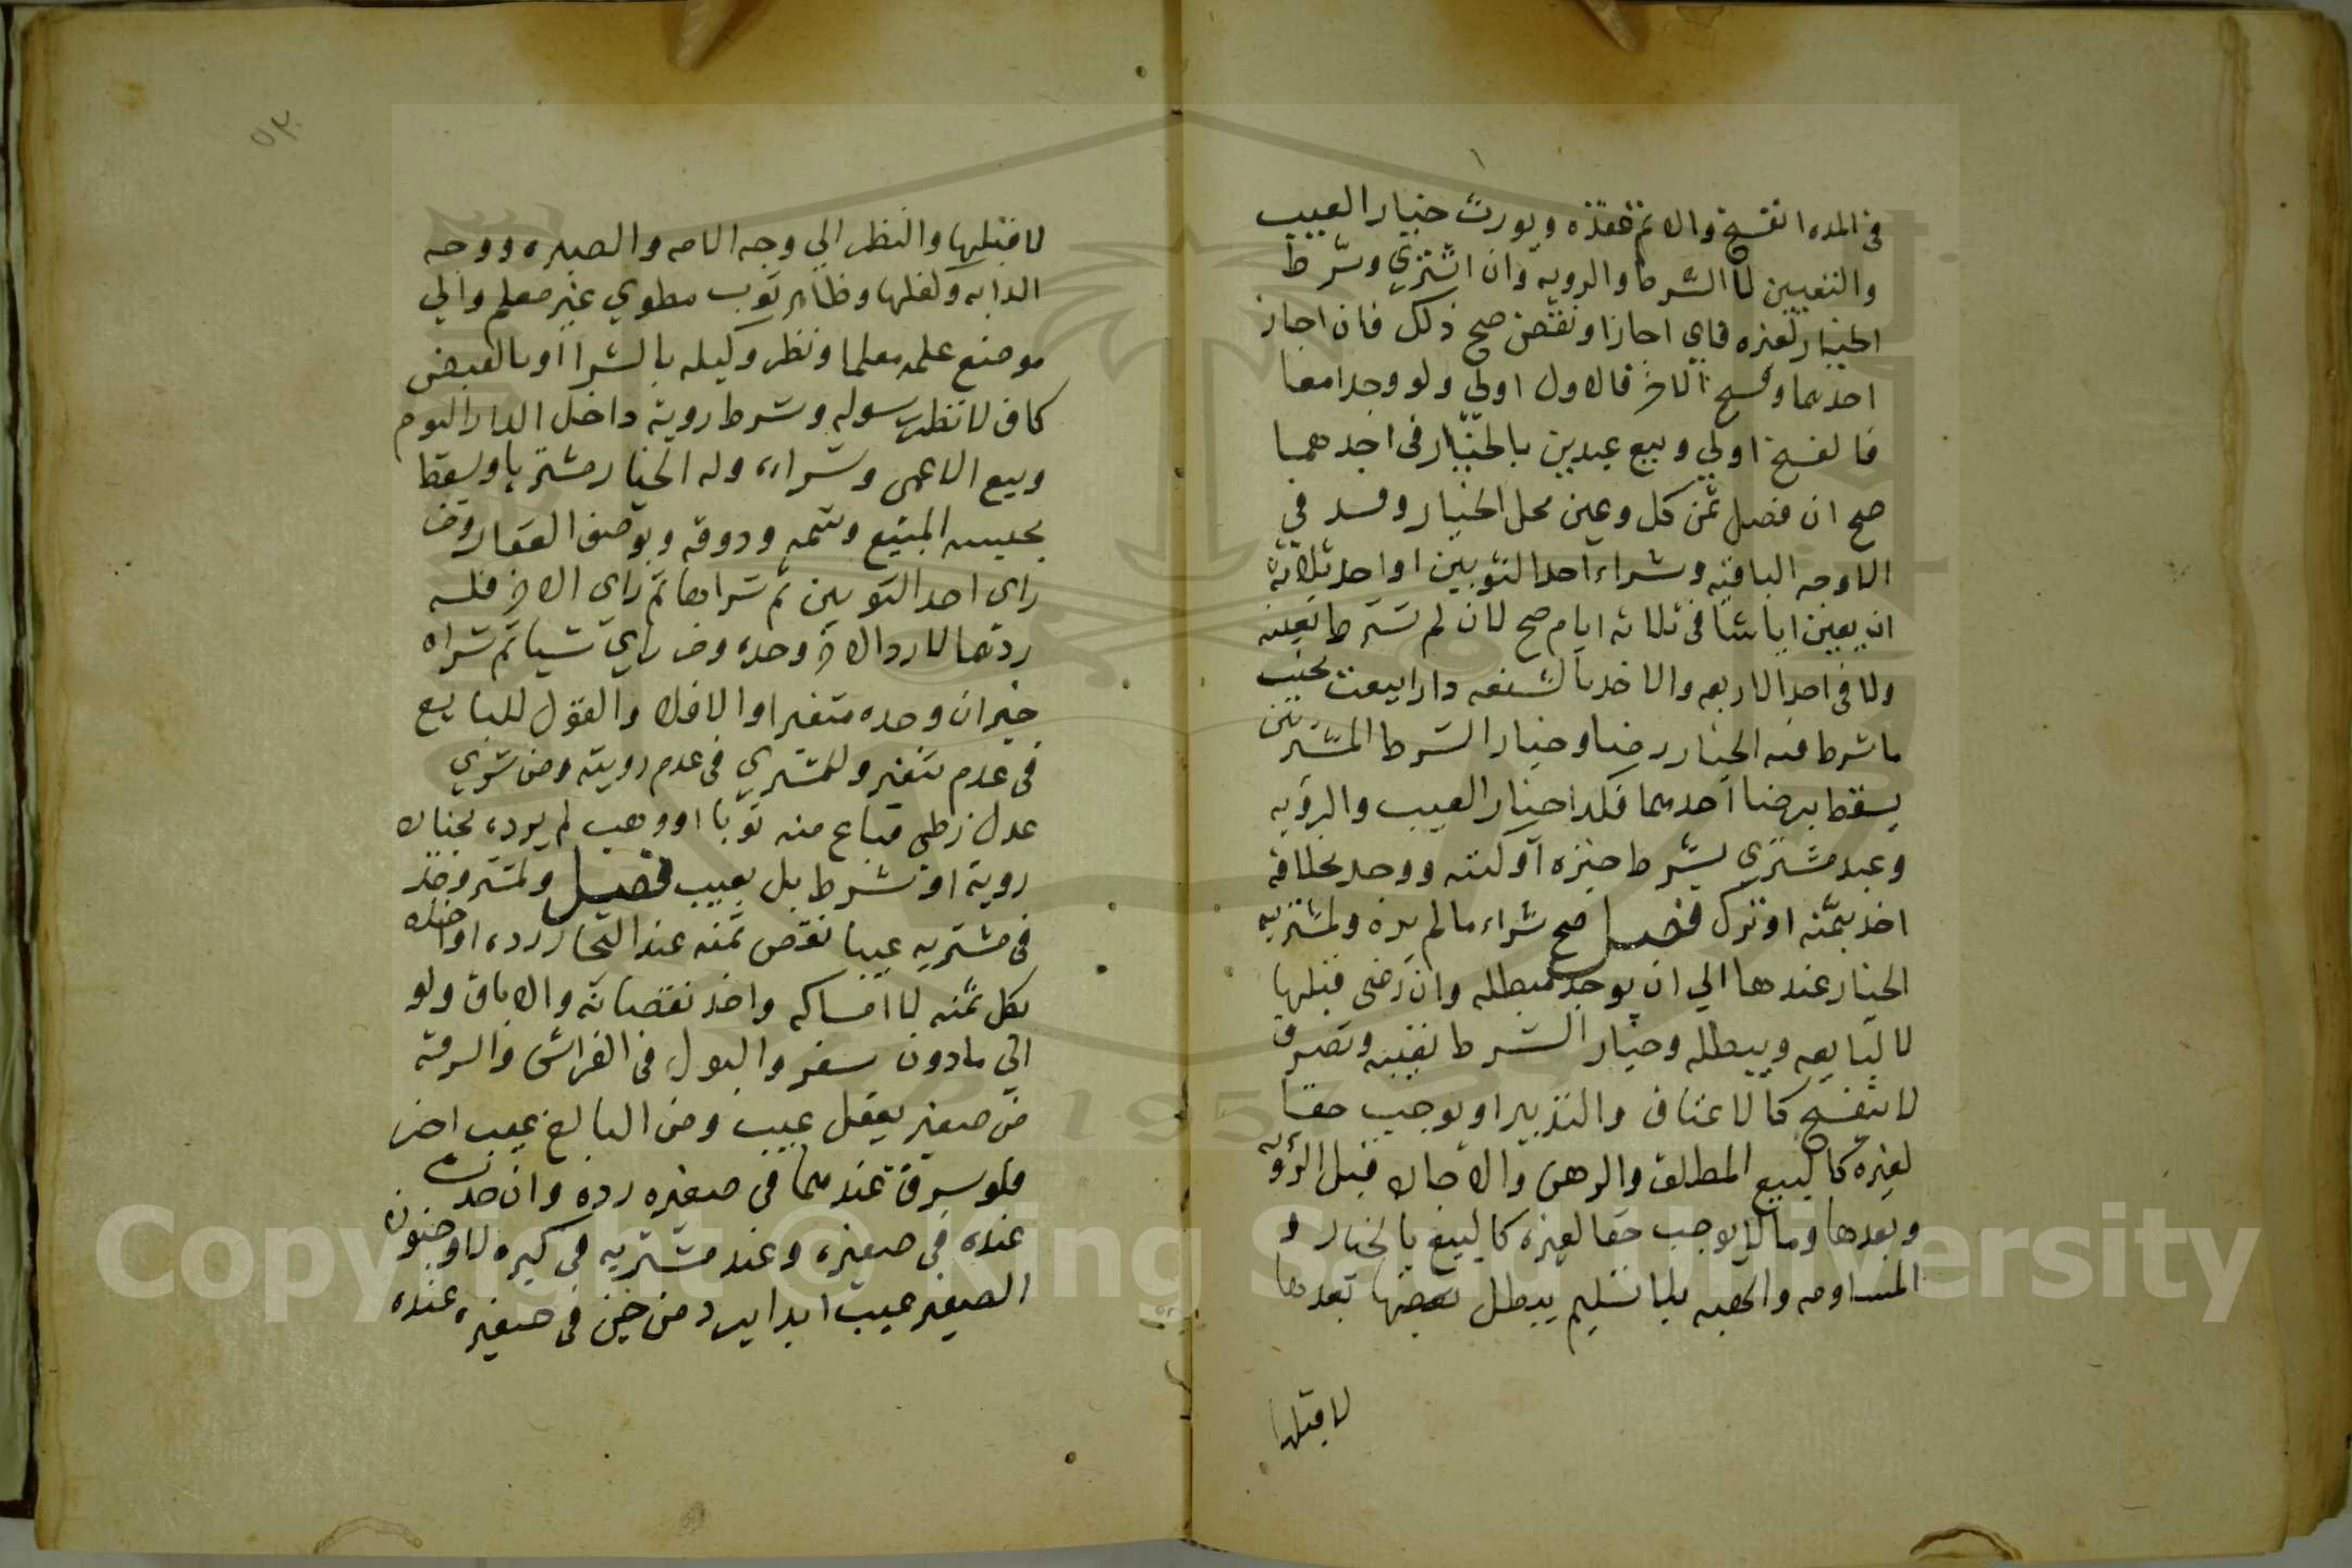 في المده انفسخ والا تم عقده ويورث خيار العيب
والتعيين لا الشرط والرويه وان اشتري وشرط
الخيار لغيره فاي اجازا ونقض صح ذلك فان اجاز
احدهما وفسخ الاخر فالاول اولي ولو وجدا معا
فالفسخ اولي وبيع عبدين بالخيار في احدهما
صح ان فصل ثمن كل وعين محل الخيار وفسد في
الاوجه الباقيه وشراء احد الثوبين او احد ثلاثة
ان يعين ايا شا في ثلاثه ايام صح لا ان لم تشرط تعينه
ولا في احد الاربعه والاخد بالشفعه دارا بيعت بجنب
ما شرط فيه الخيار رضا وخيار الشرط المشتريين
يسقط برضا احدهما فكذا خيار العيب والرؤيه
وعبد مشتري بشرط خبزه او كتبه ووجد بخلافه
اخذ بثمنه او ترك فصل صح شراء ما لم يره ولمشتريه
الخيار عندها الي ان يوجد مبطله وان رضي قبلها
لا لبايعه ويبطله وخيار الشرط تعيبه وتصرف
لا ينفسخ كالاعتاق والتدبير او يوجب حقا
لغيره كالبيع المطلق والرهن والاجاره قبل الرؤيه
وبعدها وما لا يوجب حقا لغيره كالبيع بالخيار و
المساومه والهبه بلا تسليم يبطل بعضها بعدها
لا قبلها
٥٣
لا قبلها والنظر الي وجه الامه والصبره ووجه
الدابه وكفلها وظاهر ثوب مطوي غير معلم والي
موضع علمه معلما ونظر وكيله بالشرا او بالقبض
كاف لا نظر رسوله وشرط روية داخل الدار اليوم
وبيع الاعمى وشراءه وله الخيار مشتريا ويسقط
بجسه المبيع وشمه وذوقه وبوصف العقار ومن
راى احد الثوبين ثم شراهما ثم راي الاخر فله
ردهما لا رد الاخر وحده ومن راي شيا ثم شراه
خير ان وجده متغيرا والا فلا والقول للبايع
في عدم تتغير وللمشتري في عدم رويته ومن شري
عدل زطي فباع منه ثوبا او وهب لم يرده بخيار
روية او شرط بل بعيب فصل ولمشتر وجد
في مشتريه عيبا نقص ثمنه عند التجار رده او اخذه
بكل ثمنه لا امساكه واخذ نقصانه والاباق ولو
الي مادون سفر والبول في الفراش والسرقه
من صغير يعقل عيب ومن البالغ عيب اخر
فلو سرق عندهما في صغيره رده وان حدث
عنده في صغيره وعند مشتريه في كبره لا وجنون
الصغير عيب ابدا يرد من جن في صغيره عنده
Copyright © King Saud University
1957